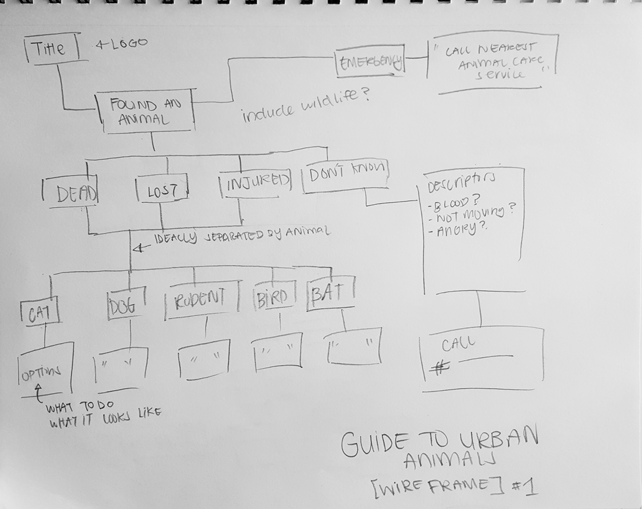 Title + LOGO
EMERGENCY
"CALL NEAREST
ANIMAL CARE
SERVICE"
FOUND AN
ANIMAL
include wildlife?
DEAD
LOST
INJURED
DON'T KNOW
DESCRIPTORS
- BLOOD?
- NOT MOVING?
- ANGRY?
IDEALLY SEPARATED BY ANIMAL
CAT
DOG
RODENT
BIRD
BAT
OPTIONS
" "
" "
" "
" "
WHAT TO DO
WHAT IT LOOKS LIKE
CALL
#
GUIDE TO URBAN
ANIMALS
[WIREFRAME] #1